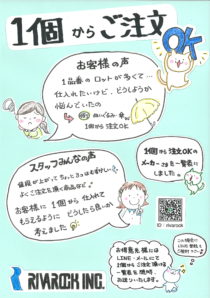 1個からご注文OK
お客様の声
1品番のロットが多くて…
仕入れたいけど、どうしようか
悩んでいたの
ぬいぐるみ 傘
1個から注文OK
1個から注文OKの
メーカーさまを一覧表に
しました。
スタッフみんなの声
値段が上がってちょっと
よくご注文を頂く商品など
お客様に1個から仕入れて
もらえるようにどうしたら良いか
考えました
ID : rivarock
お得意先様には
LINE・メールにて
1個から注文頂ける
一覧表を随時、
お送りいたします。
この機会に
LINE登録も
RIVAROCK INC.